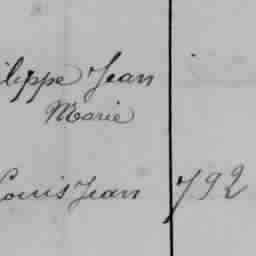 ilippe Jean
Marie
Louis Jean 792